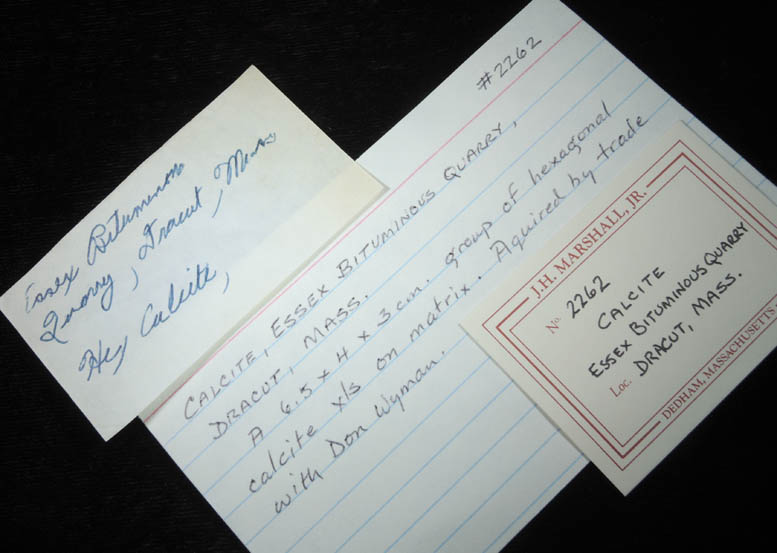 Essex Bituminous
Quarry, Dracut, Mass
Hex Calcite,
#2262
CALCITE, ESSEX BITUMINOUS QUARRY,
DRACUT, MASS.
A 6.5 x 4 x 3 cm. group of hexagonal
calcite xls on matrix. Aquired by trade
with Don Wyman.
J.H. MARSHALL, JR.
No. 2262
CALCITE
ESSEX BITUMINOUS QUARRY
Loc. DRACUT, MASS.
DEDHAM, MASSACHUSETTS